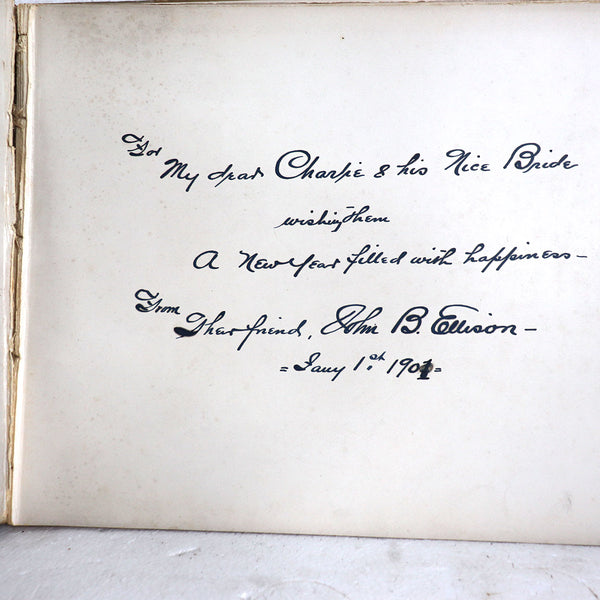 For
My dear Charlie & his Nice Bride
wishing them
A New Year filled with happiness—
From
Their friend, John B. Ellison—
= Jany 1st 1901=